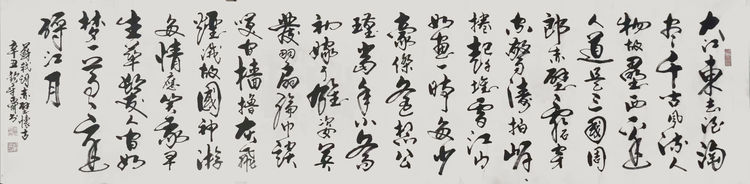 大江東去浪淘
盡千古風流人
物故壘西邊
人道是三國周
郎赤壁亂石穿
空驚濤拍岸
捲起堆雪江山
如畫一時多少
豪傑遙想公
瑾當年小喬
初嫁了雄姿英
發羽扇綸巾談
笑間檣櫓灰飛
煙滅故國神游
多情應笑我早
生華髮人間如
夢一尊還
酹江月
蘇軾詞赤壁懷古
辛丑